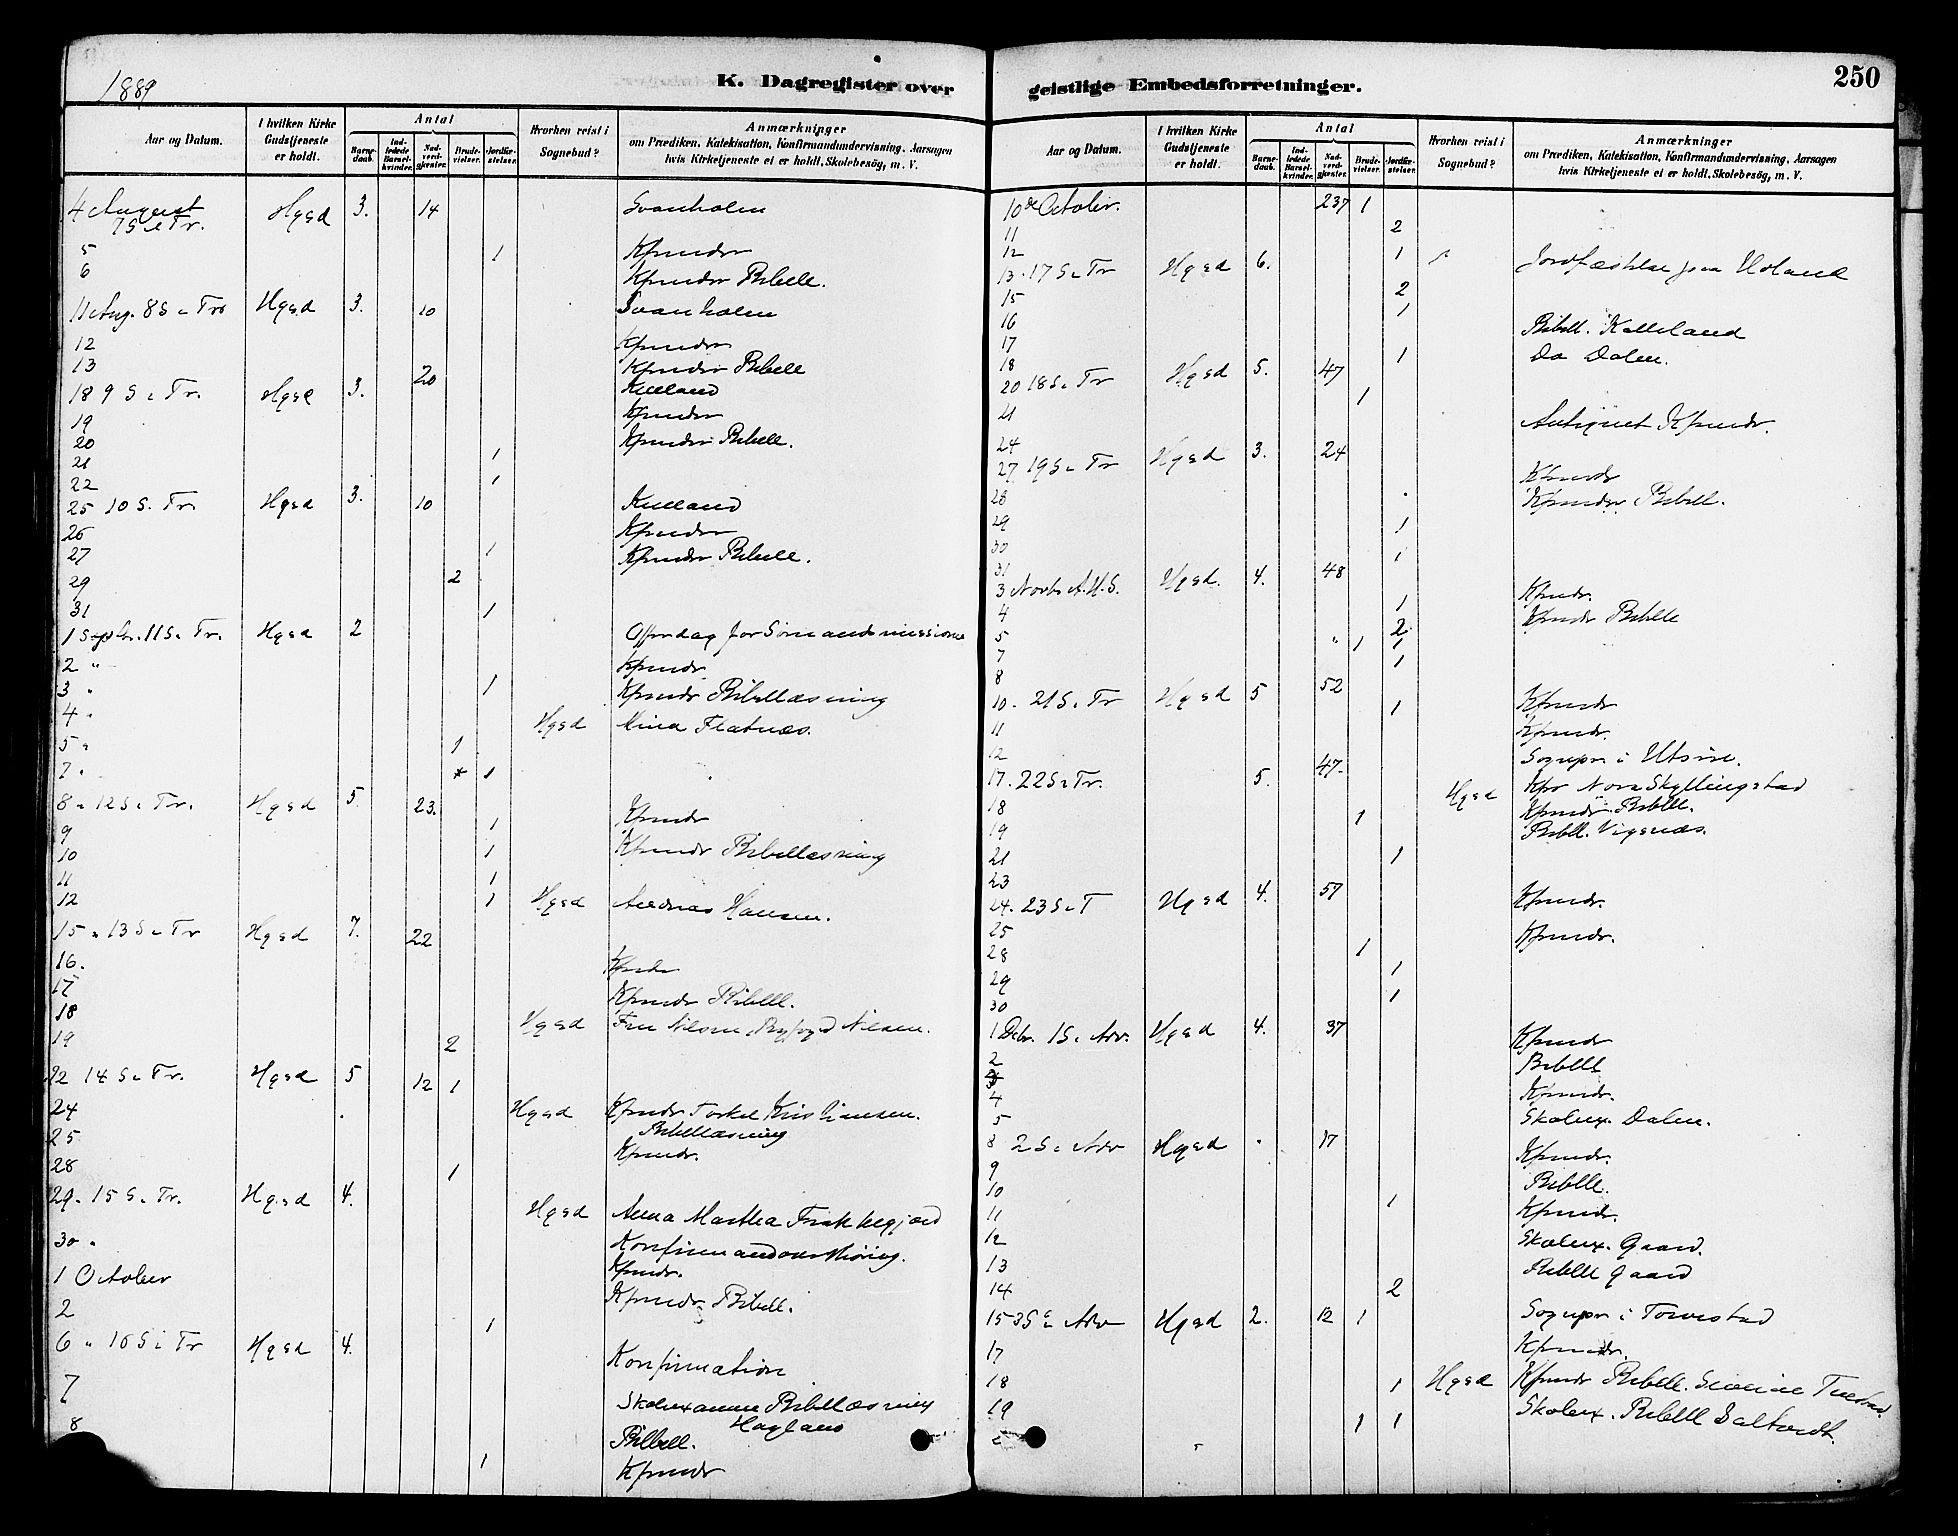 1889
K. Dagregister over
Aar og Datum.
I hvilken Kirke Gudstjeneste er holdt.
Antal
Barne-daab.
Ind-ledede Barsel-kvinder.
Nad-verd-gjester.
Brude-vielser.
Jordfæ-stelser.
Hvorhen reist i Sognebud?
Anmærkninger
om Prædiken, Katekisation, Konfirmandundervisning, Aarsagen
hvis Kirketjeneste ei er holdt, Skolebesøg, m. V.
4 August 7 S e Tr. Hgsd 3. 14 Svanholm
5 1 Kfmdr
6 Kfmdr Bibell.
11 Aug. 8 S e Tr Hgsd 3. 10 Svanholm
12 Kfmdr
13 Kfmdr Bibell
18 9 S e Tr. Hgsd 3. 20
19 Kfmdr
20 Kfmdr Bibell.
21 1
22 1
25 10 S. Tr Hgsd 3. 10
26 Kfmdr
27 1 Kfmdr Bibell.
29 2
31 1
1 Septbr. 11 S e Tr. Hgsd 2 Offerdag for Sømandsmissionen
2 " Kfmdr
3 " 1 Kfmdr Bibellæsning
4 " Hgsd Mina Flatnæs.
5 " 1
7 " 1
8 " 12 S e Tr. Hgsd 5. 23.
9 1 Kfmdr
10 1 Kfmdr Bibellæsning
11 1
12 1 Hgsd Andreas Hansen.
15 " 13 S e Tr Hgsd 7. 22
16. Kfmdr
17 Kfmdr Bibell.
18 Hgsd Fru Nilsen, Byfoged Nilsen.
19 2
22 14 S e Tr. Hgsd 5 12 1
24 Hgsd Kfmdr Torkel Kristiansen.
Bibellæsning
25 Kfmdr.
28 1
29. 15 S e Tr. Hgsd 4. Hgsd Anna Martha
30 " Konfirmandoverhøring.
1 October Kfmdr.
2 Kfmdr Bibell.
1
6 " 16 S e Tr Hgsd 4. Konfirmation
7 Skolexamen Bibellæsning
Hagland
8 Bibell.
1 Kfmdr
geistlige Embedsforretninger.
250
Aar og Datum.
I hvilken Kirke Gudstjeneste er holdt.
Antal
Barne-daab.
Ind-ledede Barsel-kvinder.
Nad-verd-gjester.
Brude-vielser.
Jordfæ-stelser.
Hvorhen reist i Sognebud?
Anmærkninger
om Prædiken, Katekisation, Konfirmandundervisning, Aarsagen
hvis Kirketjeneste ei er holdt, Skolebesøg, m. V.
10de October. 237 1
11 2
12 1
13. 17 S e Tr Hgsd 6. Jordfæstelse paa
15 2
16 1
17 Bibell. Kalleland
18 1 Do Dalen.
20 18 S e Tr Hgsd 5. 47
21 1
24 Kfmdr.
27 19 S e Tr Hgsd 3. 24
28 Kfmdr
29 1 Kfmdr Bibell.
30
31 1
3 Novbr A.H.S. Hgsd. 4. 48
4 1 Kfmdr.
5 2 Kfmdr Bibell
7 1 1
8 1
10. 21 S e Tr Hgsd 5 52
11 1 Kfmdr
12 Kfmdr.
17. 22 S e Tr. 5. 47. Sognepr i Utsire.
18 Hgsd Kfmdr Nora Skyllingstad
19 1 Kfmdr Bibell.
21 1 Bibell. Vigsnæs
23
24. 23 S e T Hgsd 4. 57
25 Kfmdr.
28 1 Kfmdr.
29 1
30 1
1 Debr. 1 S e Adv. Hgsd 4. 37
2 Kfmdr
3 Bibell
4 Kfmdr.
5 Skolex. Dalen.
8 2 S e Adv Hgsd " 17
9 Kfmdr.
10 Bibell.
11 1 Kfmdr.
12 Skolex. Gaard.
13 Bibell Gaard
14 2
15 3 S e Adv Hgsd 2. 12 1 Sognepr i Torvestad
17 Kfmdr.
18 1 Hgsd Kfmdr Bibell.
19 1 1 Skolex. Bibell